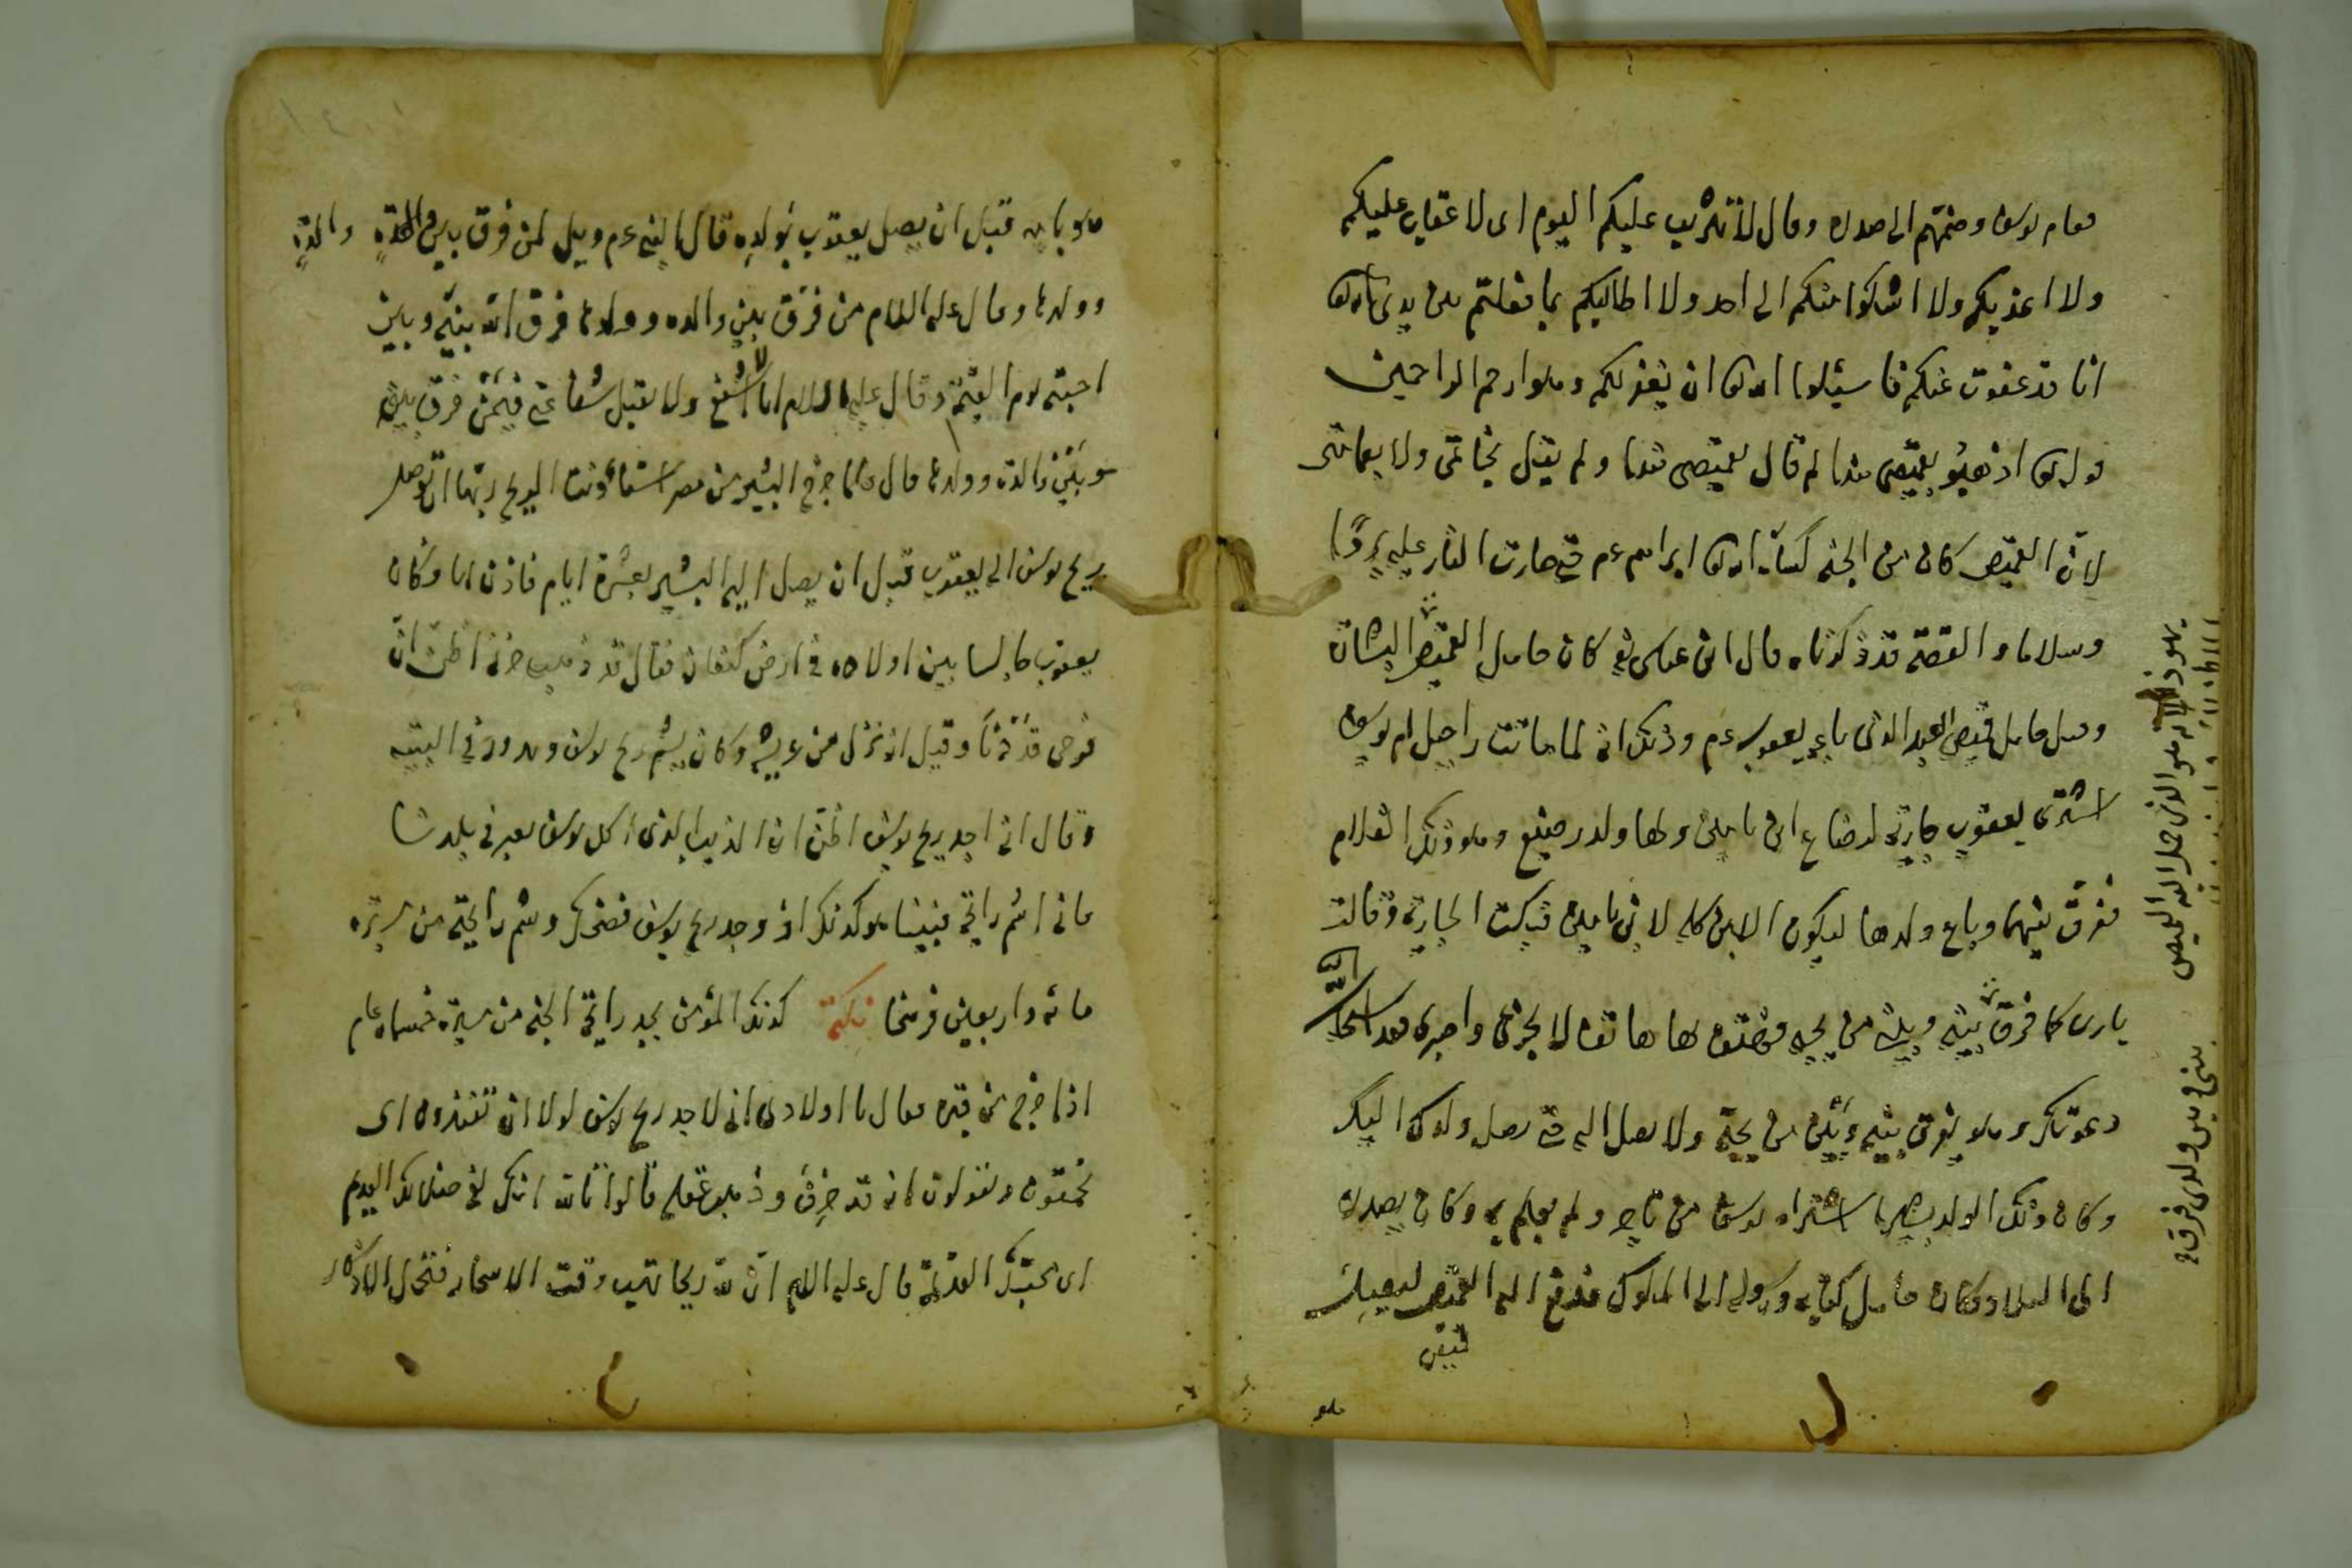 فقام يوسف وضمهم الى صدره وقال لا تثريب عليكم اليوم اى لا عقاب عليكم
ولا اعذبكم ولا اشكوا منكم الى احد ولا اطالبكم بما فعلتم بين يدى الله تعالى
انا قد عفوت عنكم فاسئلوا الله تعالى ان يغفر لكم وهو ارحم الراحمين
قوله تعالى اذهبوا بقميصى هذا لم قال بقميصى هذا ولم يقل بخاتمى ولا بعمامتى
لان القميص كان من الجنة كساه الله تعالى ابراهيم عم حتى صارت النار عليه بردا
وسلاما والقصة قد ذكرناه قال ابن عباس كان حامل القميص البشارة
وقيل حامل قميص العبد الذى باعه يعقوب عم وذلك انه لما ماتت راحيل ام يوسف
اشترى يعقوب جارية لرضاع ابن يامين ولها ولد رضيع وهو ذلك الغلام
ففرق بينهما وباع ولدها ليكون اللبن كله لابن يامين فبكت الجارية وقالت
يا رب كما فرق بينى وبين من يحبه فهتف لها هاتف لا تحزنى واصبرى فقد استجاب الله
دعوتك وهو يفرق بينه وبين من يحبه ولا يصل اليه حتى يصل ولدك اليك
وكان ذلك الولد بشيرا اشتراه يوسف من تاجر ولم يعلم به وكان يصدره
الى البلاد وكان حامل كتابه ورسوله الى الملوك فدفع اليه القميص ليعيك
قميص
هو
يهوذا لانه هو الذى حمل اليه القميص
بينى وبين ولدى فرق
هو بابيه قبل ان يصل يعقوب بولده قال النبى عم ويل لمن فرق بين والدة والدة
وولدها وقال عليه السلام من فرق بين والدة وولدها فرق الله بينه وبين
احبته يوم القيمة وقال عليه السلام انا لا اشفع ولا يقبل شفاعتى فيمن فرق بينه
وبين والدة وولدها قال ولما خرج البشير من مصر استأذنت الريح ربها ان توصل
ريح يوسف الى يعقوب قبل ان يصل اليه البشير بعشرة ايام فاذن لها وكان
يعقوب جالسا بين اولاده فى ارض كنعان فقال قد ذهب حزنى اظن ان
فرحى قد دنا وقيل انه نزل من عريشه وكان يشم ريح يوسف ويدور فى البيت
وقال انى اجد ريح يوسف اظن ان الذيب الذى اكل يوسف يعبر فى بلدنا
فانى اشم رايحته فبينما هو كذلك اذ وجد ريح يوسف فضحك وشم رايحته من مسيرة
مائة واربعين فرسخا نكتة كذلك المؤمن يجد رايحة الجنة من مسيرة خمسمائة عام
اذا خرج من قبره فقال يا اولادى انى لاجد ريح يوسف لولا ان تفندون اى
تحمقون وتقولون انه قد خرف وذهب عقله قالوا تالله انك لفى ضلالك القديم
اى محبتك القديمة قال عليه السلام ان لله ريحا تهب وقت الاسحار فتحمل الاذكار